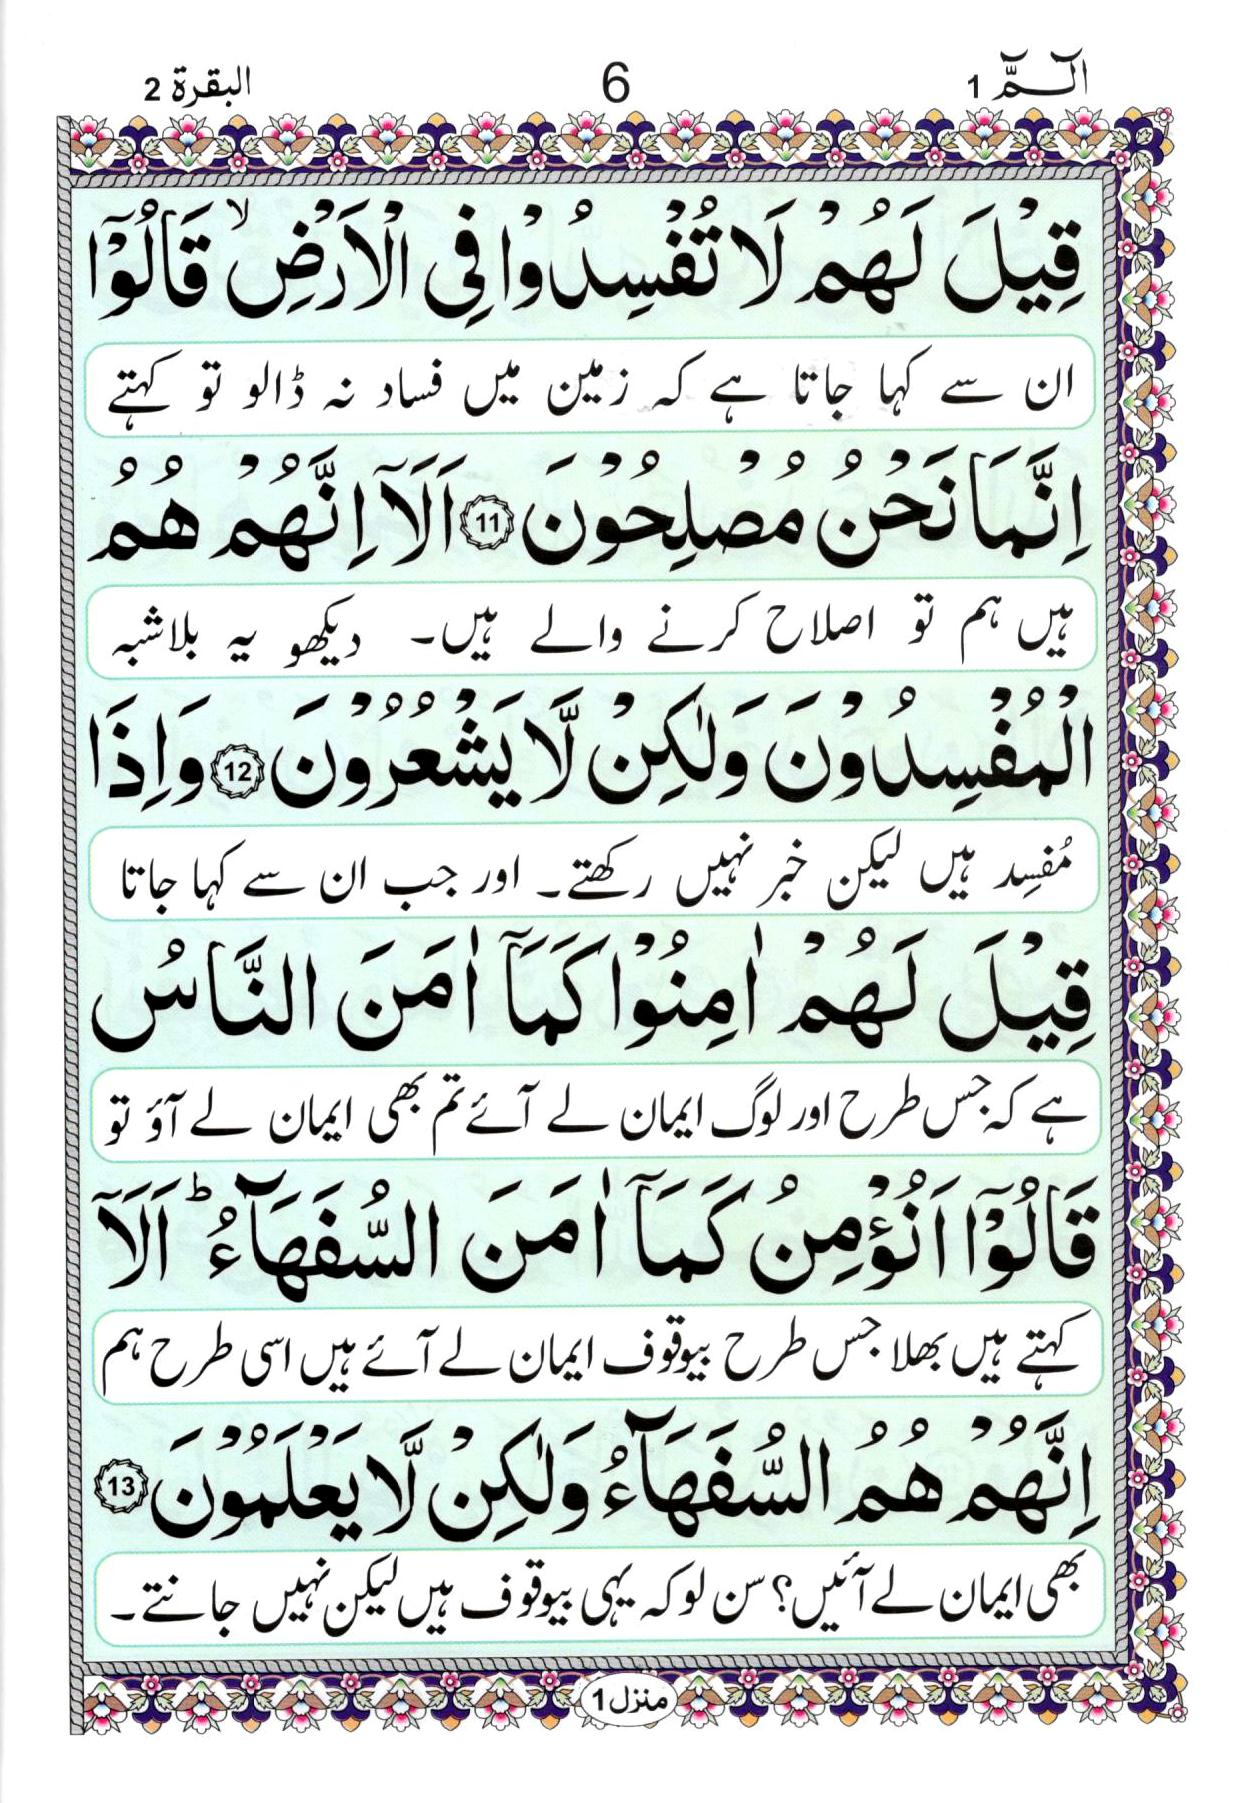 الٓـمّٓ 1
6
البقرة 2
قِيْلَ لَهُمْ لَا تُفْسِدُوْا فِي الْاَرْضِ ۙ قَالُوْٓا
ان سے کہا جاتا ہے کہ زمین میں فساد نہ ڈالو تو کہتے
اِنَّمَا نَحْنُ مُصْلِحُوْنَ 11 اَلَآ اِنَّهُمْ هُمُ
ہیں ہم تو اصلاح کرنے والے ہیں۔ دیکھو یہ بلاشبہ
الْمُفْسِدُوْنَ وَلٰكِنْ لَّا يَشْعُرُوْنَ 12 وَاِذَا
مُفسِد ہیں لیکن خبر نہیں رکھتے۔ اور جب ان سے کہا جاتا
قِيْلَ لَهُمْ اٰمِنُوْا كَمَآ اٰمَنَ النَّاسُ
ہے کہ جس طرح اور لوگ ایمان لے آئے تم بھی ایمان لے آؤ تو
قَالُوْٓا اَنُؤْمِنُ كَمَآ اٰمَنَ السُّفَهَآءُ ؕ اَلَآ
کہتے ہیں بھلا جس طرح بیوقوف ایمان لے آئے ہیں اسی طرح ہم
اِنَّهُمْ هُمُ السُّفَهَآءُ وَلٰكِنْ لَّا يَعْلَمُوْنَ 13
بھی ایمان لے آئیں؟ سن لو کہ یہی بیوقوف ہیں لیکن نہیں جانتے۔
منزل 1